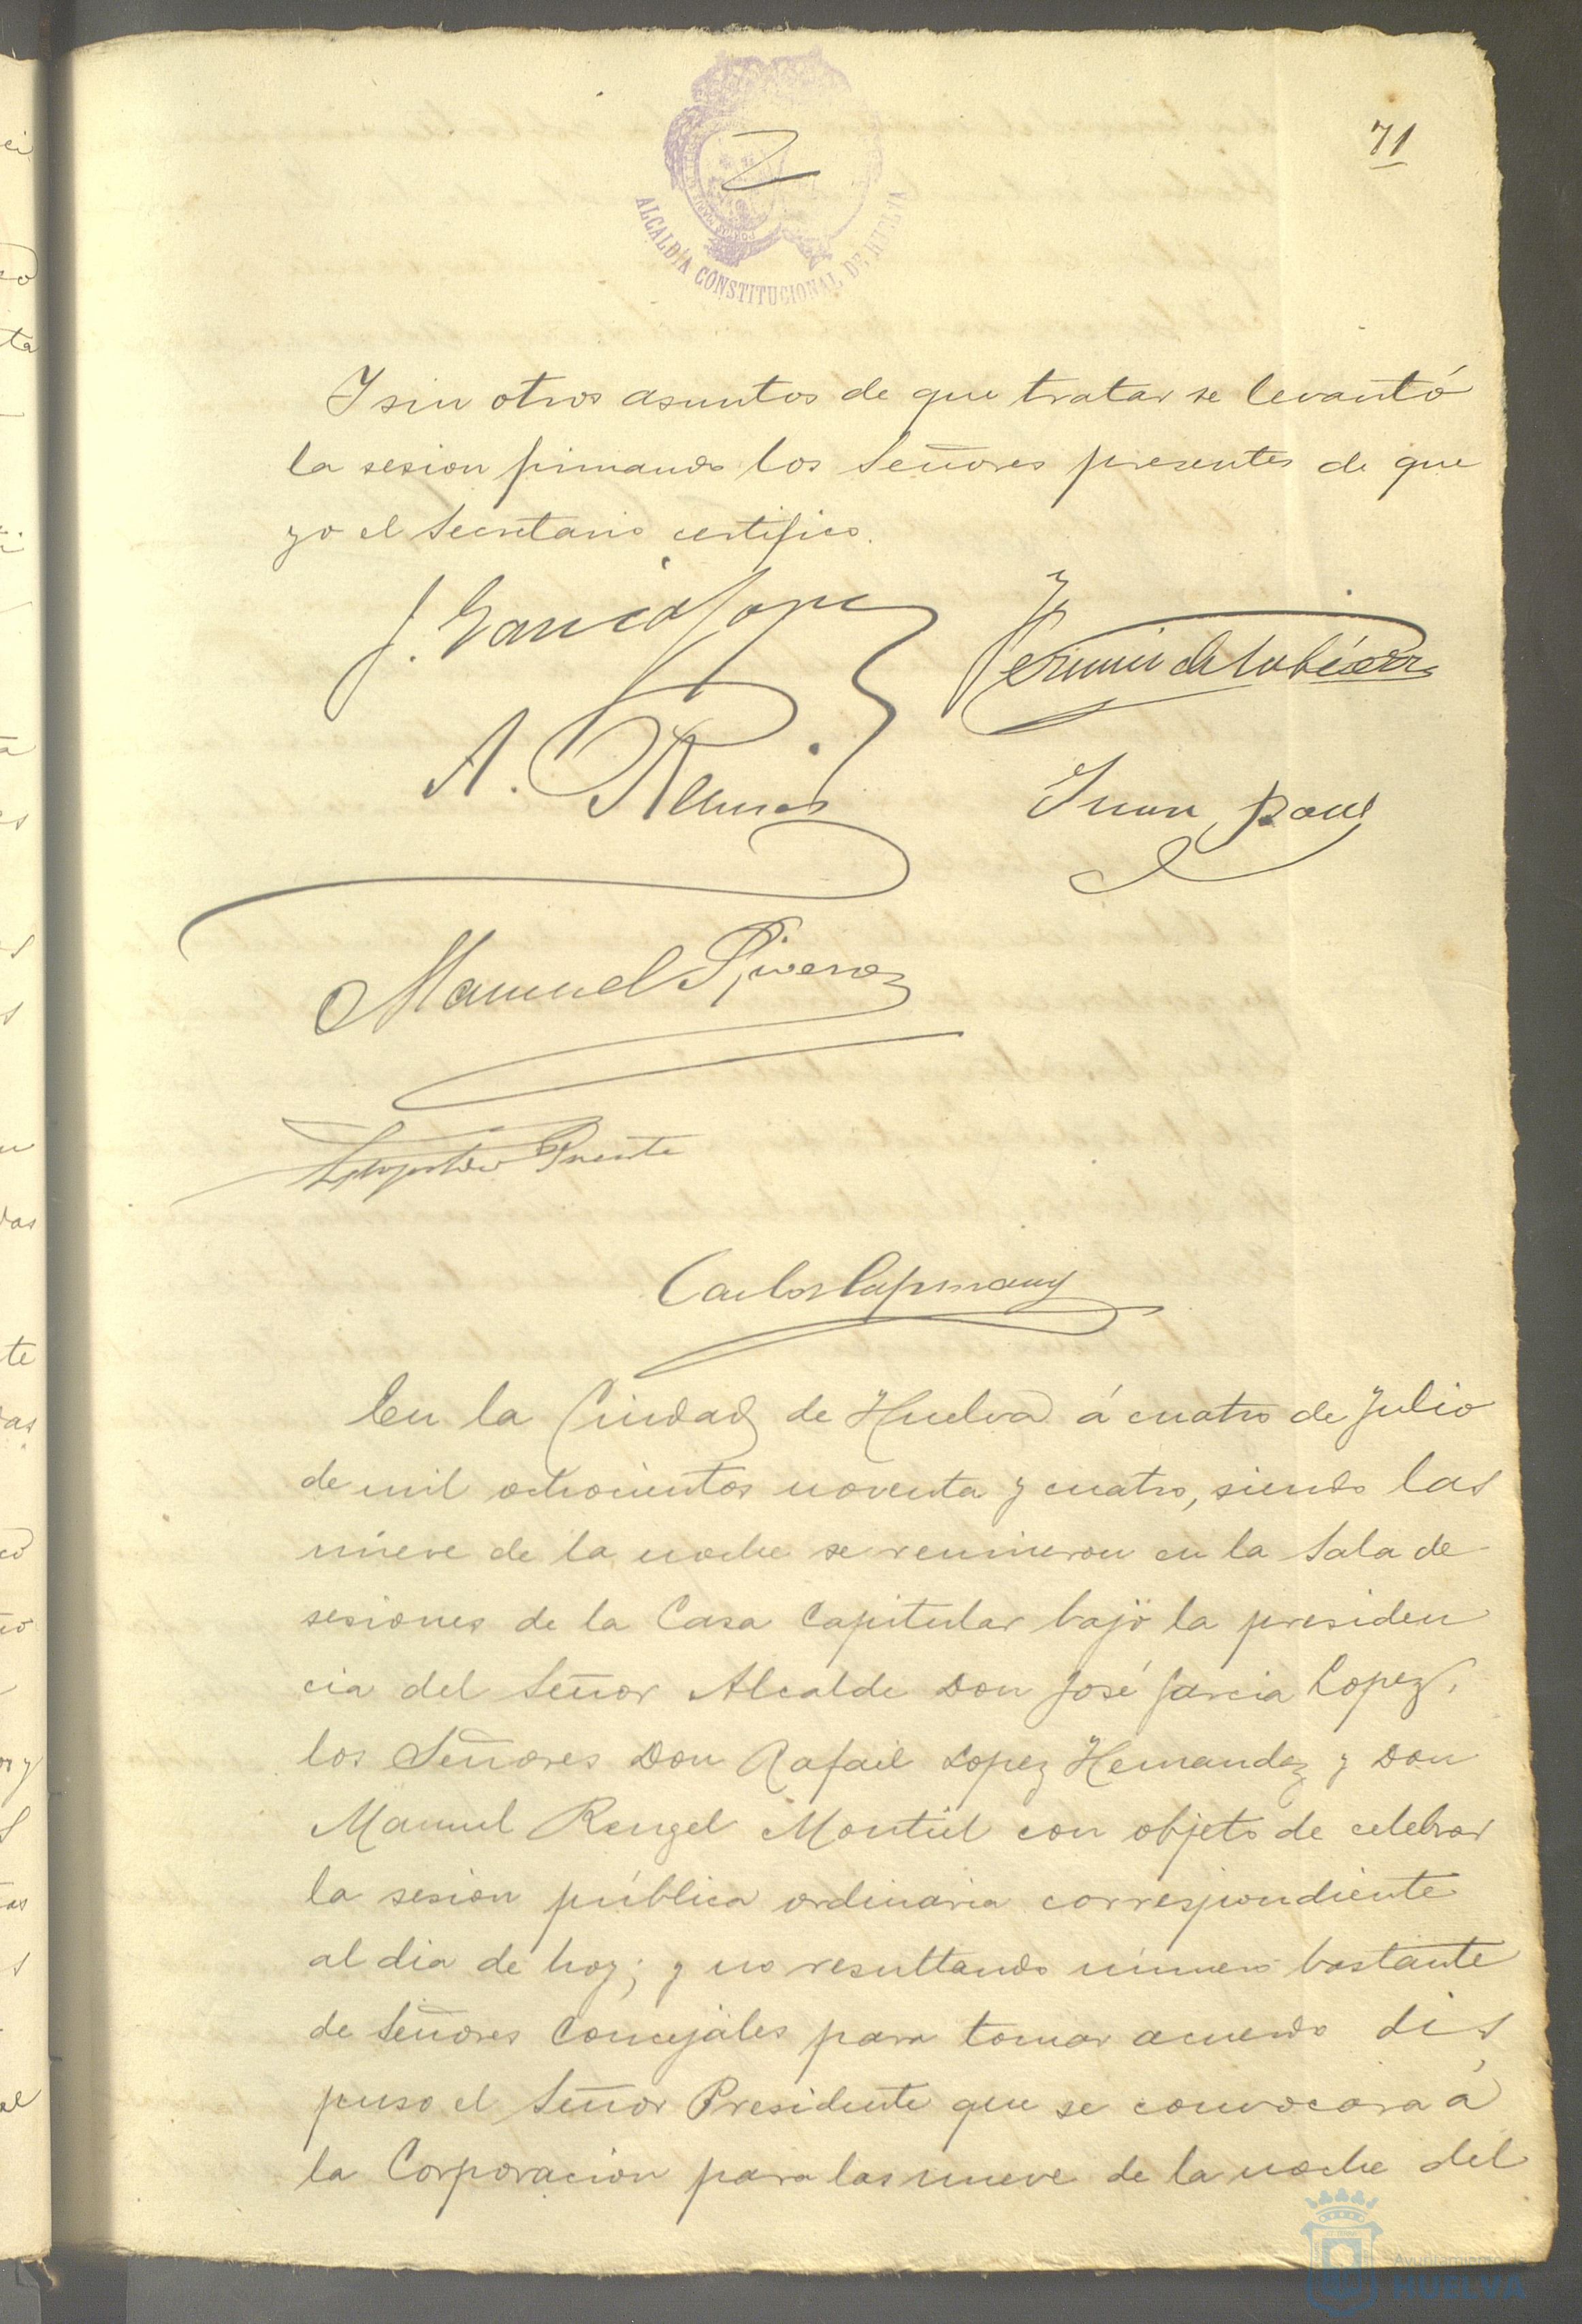 71
ALCALDÍA CONSTITUCIONAL DE HUELVA
Y sin otros asuntos de que tratar se levantó
la sesion firmando los Señores presentes de que
yo el Secretario certifico.
J. Garcia Lopez
A. Ramos
Juan
Manuel Rivero
Puente
Carlos Capmany
En la Ciudad de Huelva á cuatro de Julio
de mil ochocientos noventa y cuatro, siendo las
nueve de la noche se reunieron en la Sala de
sesiones de la Casa Capitular bajo la presiden
cia del Señor Alcalde Don José Garcia Lopez,
los Señores Don Rafael Lopez Hernandez y Don
Manuel Rengel Montiel con objeto de celebrar
la sesion pública ordinaria correspondiente
al dia de hoy; y no resultando número bastante
de Señores Concejales para tomar acuerdo dis
puso el Señor Presidente que se convocara á
la Corporacion para las nueve de la noche del
Ayuntamiento
HUELVA